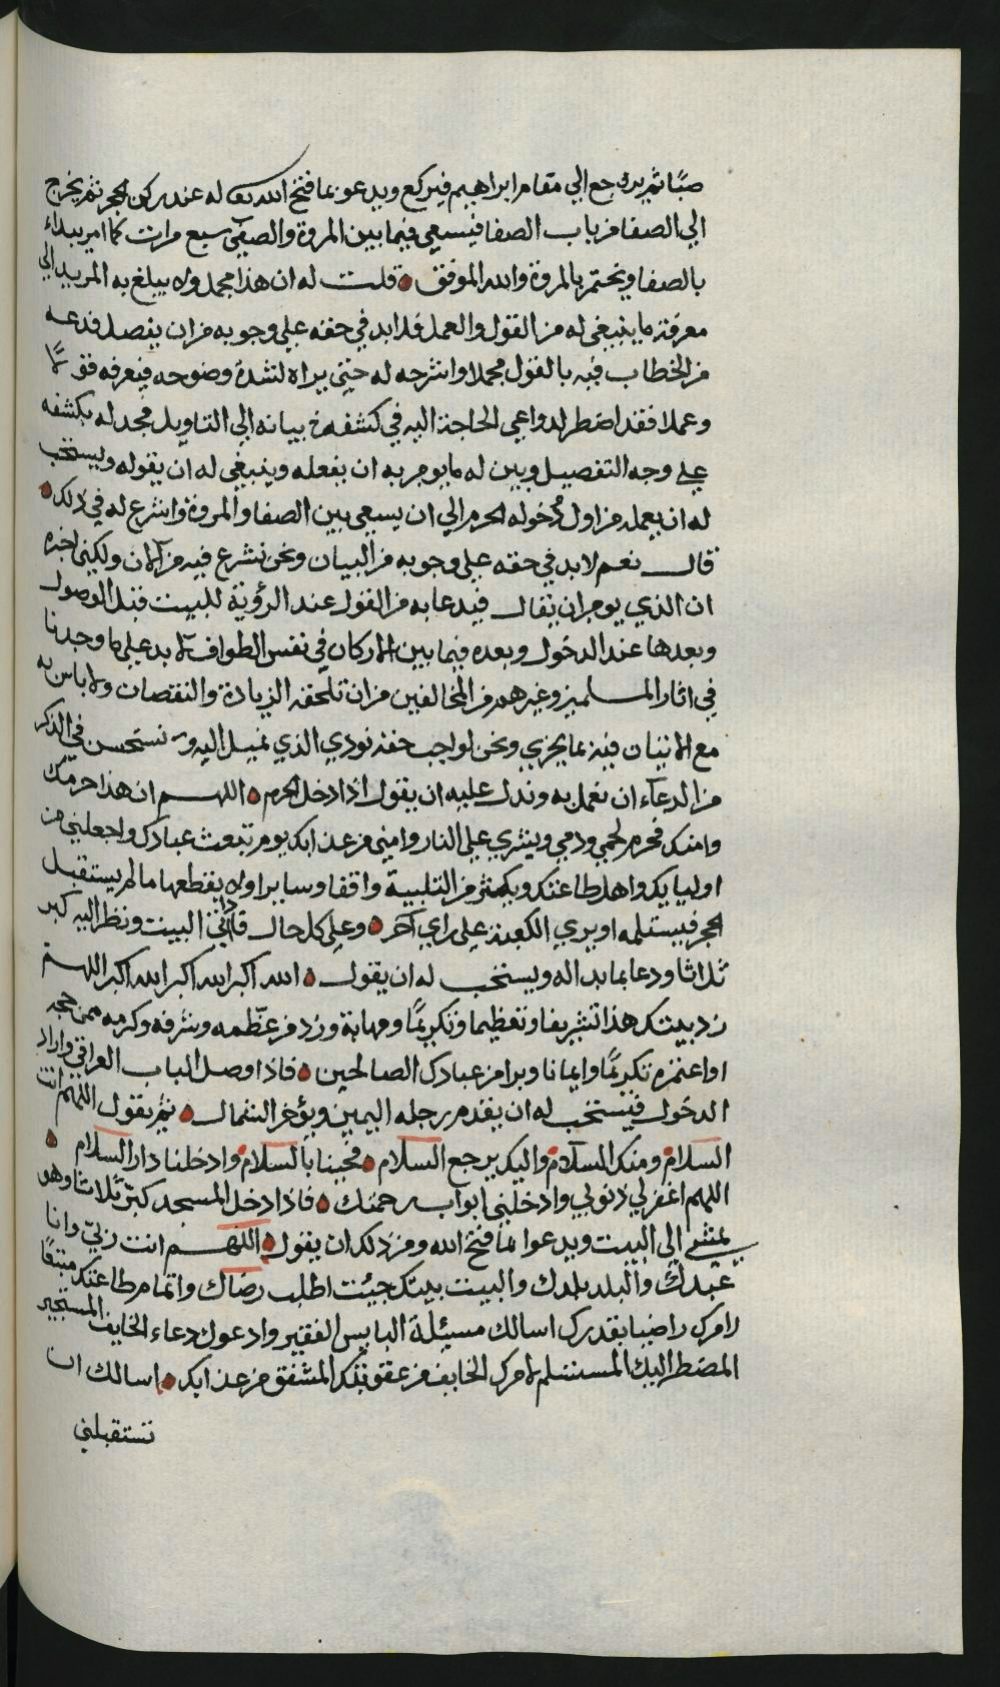 صبًا ثم يرجع الي مقام ابراهيم فيركع ويدعو بما فتح الله له عند ركن الحجر ثم يخرج
الي الصفا من باب الصفا فيسعي فيما بين المروة والصفي سبع مرات كما امر يبداء
بالصفا ويختم بالمروة والله الموفق قلت له ان هذا مجمل ولا يبلغ به المريد الي
معرفة ما ينبغي له من القول والعمل فلا بد في حقه علي وجوبه من ان يفصل فدعه
من الخطاب فيه بالقول مجملا واشرحه له حتي يراه لشدة وضوحه فيعرفه قولًا
وعملا فقد اضطر لدواعي الحاجة اليه في كشفه بيانه الي التاويل فجد له بكشفه
علي وجه التفصيل وبين له ما يومر به ان يفعله وينبغي له ان يقوله ويستحب
له ان يعمله من اول دخوله الحرم الي ان يسعي بين الصفا والمروة واشرع له في ذلك
قال نعم لا بد في حقه علي وجوبه من البيان ونحن نشرع فيه من الان ولكني اخبره
ان الذي يومر ان يقال فيدعا به من القول عند الرؤية للبيت قبل الوصول
وبعدها عند الدخول وبعده فيما بين الاركان في نفس الطواف لا بد علي ما وجدنا
في اثار المسلمين وغيرهم من المخالفين من ان تلحقه الزيادة والنقصان ولا باس به
مع الاتيان فيه بما يجزي ونحن لواجب حقه نودي الذي نميل اليه ونستحسن في الذكر
من الدعاء ان نعمل به وندل عليه ان يقول اذا دخل الحرم اللهم ان هذا حرمك
وامنك فحرم لحمي ودمي وبشري علي النار وامني من عذابك يوم تبعث عبادك واجعلني من
اوليايك واهل طاعتك ويكثر من التلبية واقفا وسايرا ولا يقطعها ما لم يستقبل
الحجر فيستلمه او يري الكعبة علي راي آخر وعلي كل حال فاذا اتي البيت ونظر اليه كبر
ثلاثا ودعا بما بدا له ويستحب له ان يقول الله اكبر الله اكبر الله اكبر اللهم
زد بيتك هذا تشريفا وتعظيما وتكريمًا ومهابة وزد من عظّمه وشرفه وكرمه ممن حجه
او اعتمره تكريمًا وايمانا وبرا من عبادك الصالحين فاذا وصل الباب العراقي واراد
الدخول فيستحب له ان يقدم رجله اليمين ويؤخر الشمال ثم يقول اللهم انت
السلام ومنك السلام واليك يرجع السلام فحيينا بالسلام وادخلنا دار السلام
اللهم اغفر لي ذنوبي وادخلني ابواب رحمتك فاذا دخل المسجد كبّر ثلاثا وهو
يمشي الي البيت ويدعو بما فتح الله ومن ذلك ان يقول اللهم انت ربّي وانا
عبدك والبلد بلدك والبيت بيتك جيئت اطلب رضاك واتمام طاعتك متبعًا
لامرك راضيا بقدرك اسالك مسيئلة البايس الفقير وادعوك دعاء الخايف المستجير
المضطر اليك المستسلم لامرك الخايف من عقوبتك المشفق من عذابك اسالك ان
تستقبلني